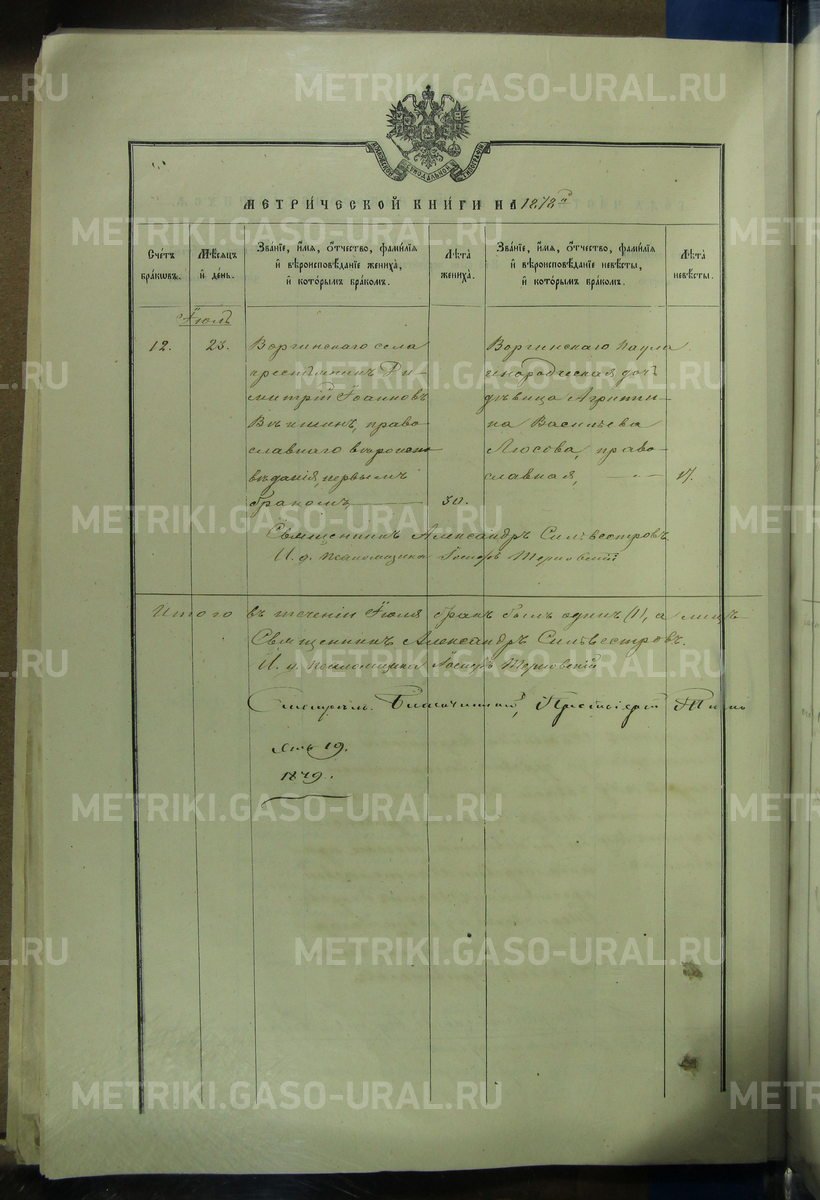 МОСКОВСКОЙ СѴНОДАЛЬНОЙ ТИПОГРАФІИ
МЕТРИ́ЧЕСКОЙ КНИ́ГИ НА 1878 й
Сче́тъ бра́ковъ.
Мѣ́сяцъ и҆ де́нь.
Зва́нїе, и҆́мѧ, ѻ҆́тчество, фами́лїѧ
и҆ вѣроисповѣ́данїе жениха̀,
и҆ кото́рымъ бра́комъ.
Лѣ́та жениха̀.
Зва́нїе, и҆́мѧ, ѻ҆́тчество, фами́лїѧ
и҆ вѣроисповѣ́данїе невѣ́сты,
и҆ кото́рымъ бра́комъ.
Лѣ́та невѣ́сты.
Іюль
12. 23. Воргинскаго села
крестьянинъ Ди-
митрій Іоанновъ
православнаго вѣроиспо-
вѣданія, первымъ
бракомъ 30.
Воргинскаго паула
инородческая дочь
дѣвица Агриппи-
на Васильева
Люсова, право-
славная, 17.
Священникъ Александръ Сильвестровъ
И. д. псаломщика Іосифъ Терновскій
Итого въ теченіи Іюля бракъ былъ одинъ (1), а лицъ
Священникъ Александръ Сильвестровъ.
И. д. псаломщика Іосифъ Терновскій
Смотрѣлъ Благочинный, Протоіерей
19.
1879.
METRIKI.GASO-URAL.RU